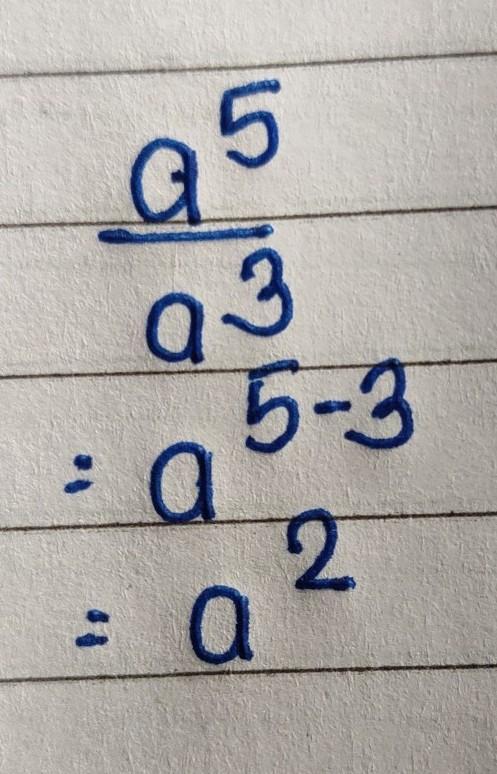 a⁵
a³
= a⁵⁻³
= a²